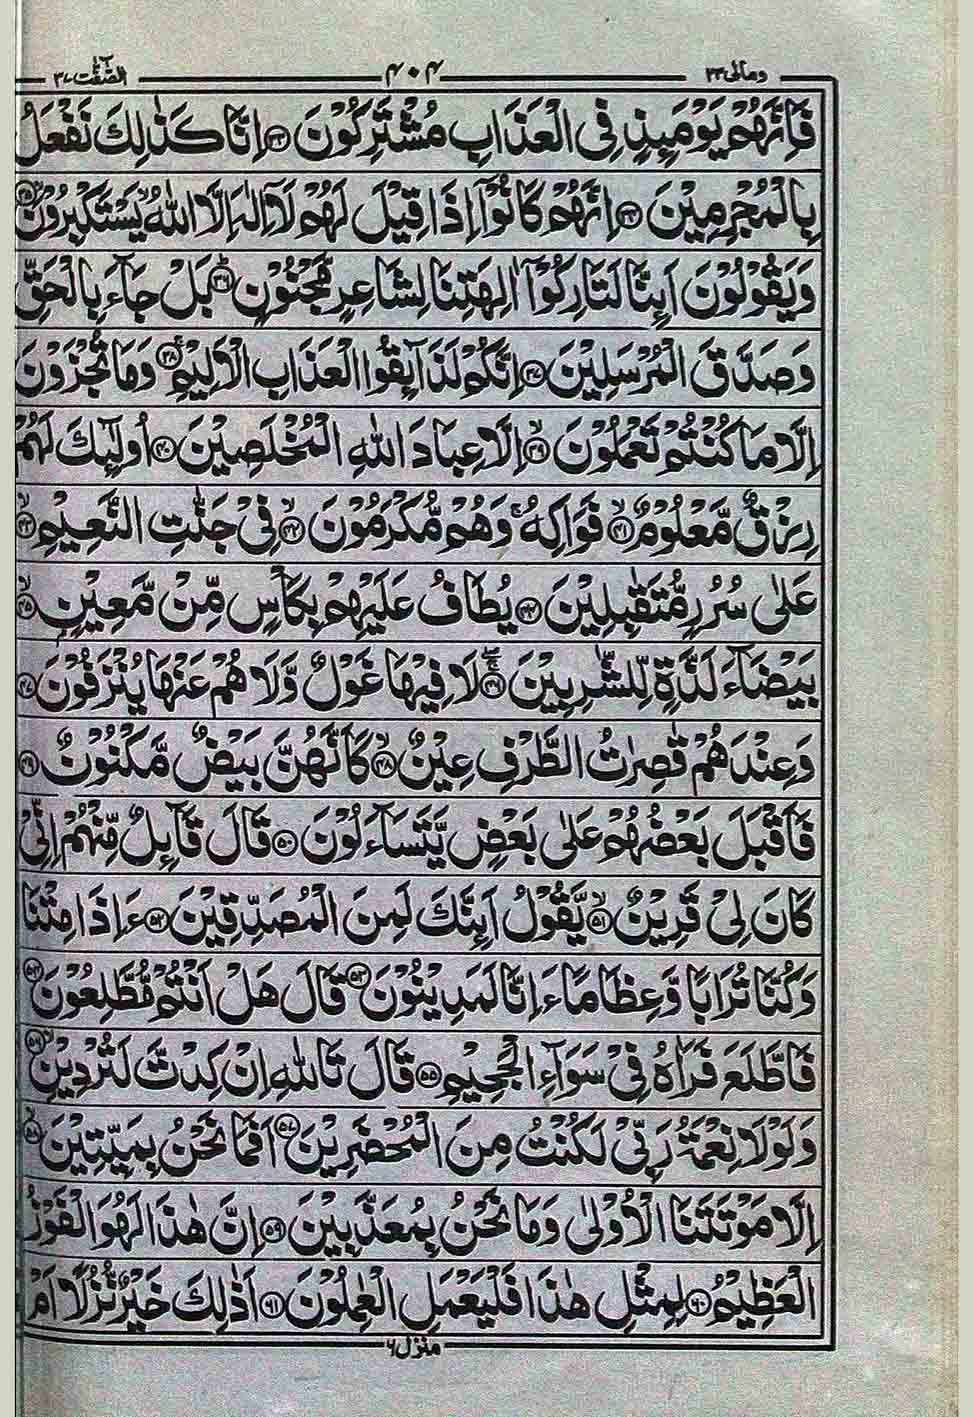 وما لی ۲۳
۴۰۴
الصّٰفّٰت ۳۷
فَاِنَّهُمْ يَوْمَىِٕذٍ فِی الْعَذَابِ مُشْتَرِكُوْنَ ۳۳ اِنَّا كَذٰلِكَ نَفْعَلُ
بِالْمُجْرِمِيْنَ ۳۴ اِنَّهُمْ كَانُوْۤا اِذَا قِيْلَ لَهُمْ لَاۤ اِلٰهَ اِلَّا اللّٰهُ يَسْتَكْبِرُوْنَ ۳۵
وَيَقُوْلُوْنَ اَىِٕنَّا لَتَارِكُوْۤا اٰلِهَتِنَا لِشَاعِرٍ مَّجْنُوْنٍ ۳۶ بَلْ جَآءَ بِالْحَقِّ
وَصَدَّقَ الْمُرْسَلِيْنَ ۳۷ اِنَّكُمْ لَذَآىِٕقُوا الْعَذَابِ الْاَلِيْمِ ۳۸ وَمَا تُجْزَوْنَ
اِلَّا مَا كُنْتُمْ تَعْمَلُوْنَ ۳۹ اِلَّا عِبَادَ اللّٰهِ الْمُخْلَصِيْنَ ۴۰ اُولٰٓىِٕكَ لَهُمْ
رِزْقٌ مَّعْلُوْمٌ ۴۱ فَوَاكِهُ ۚ وَهُمْ مُّكْرَمُوْنَ ۴۲ فِیْ جَنّٰتِ النَّعِيْمِ ۴۳
عَلٰی سُرُرٍ مُّتَقٰبِلِيْنَ ۴۴ يُطَافُ عَلَيْهِمْ بِكَاْسٍ مِّنْ مَّعِيْنٍ ۴۵
بَيْضَآءَ لَذَّةٍ لِّلشّٰرِبِيْنَ ۴۶ لَا فِيْهَا غَوْلٌ وَّلَا هُمْ عَنْهَا يُنْزَفُوْنَ ۴۷
وَعِنْدَهُمْ قٰصِرٰتُ الطَّرْفِ عِيْنٌ ۴۸ كَاَنَّهُنَّ بَيْضٌ مَّكْنُوْنٌ ۴۹
فَاَقْبَلَ بَعْضُهُمْ عَلٰی بَعْضٍ يَّتَسَآءَلُوْنَ ۵۰ قَالَ قَآىِٕلٌ مِّنْهُمْ اِنِّیْ
كَانَ لِیْ قَرِيْنٌ ۵۱ يَّقُوْلُ اَىِٕنَّكَ لَمِنَ الْمُصَدِّقِيْنَ ۵۲ ءَاِذَا مِتْنَا
وَكُنَّا تُرَابًا وَّعِظَامًا ءَاِنَّا لَمَدِيْنُوْنَ ۵۳ قَالَ هَلْ اَنْتُمْ مُّطَّلِعُوْنَ ۵۴
فَاطَّلَعَ فَرَاٰهُ فِیْ سَوَآءِ الْجَحِيْمِ ۵۵ قَالَ تَاللّٰهِ اِنْ كِدْتَّ لَتُرْدِيْنِ ۵۶
وَلَوْلَا نِعْمَةُ رَبِّیْ لَكُنْتُ مِنَ الْمُحْضَرِيْنَ ۵۷ اَفَمَا نَحْنُ بِمَيِّتِيْنَ ۵۸
اِلَّا مَوْتَتَنَا الْاُوْلٰی وَمَا نَحْنُ بِمُعَذَّبِيْنَ ۵۹ اِنَّ هٰذَا لَهُوَ الْفَوْزُ
الْعَظِيْمُ ۶۰ لِمِثْلِ هٰذَا فَلْيَعْمَلِ الْعٰمِلُوْنَ ۶۱ اَذٰلِكَ خَيْرٌ نُّزُلًا اَمْ
منزل ۶